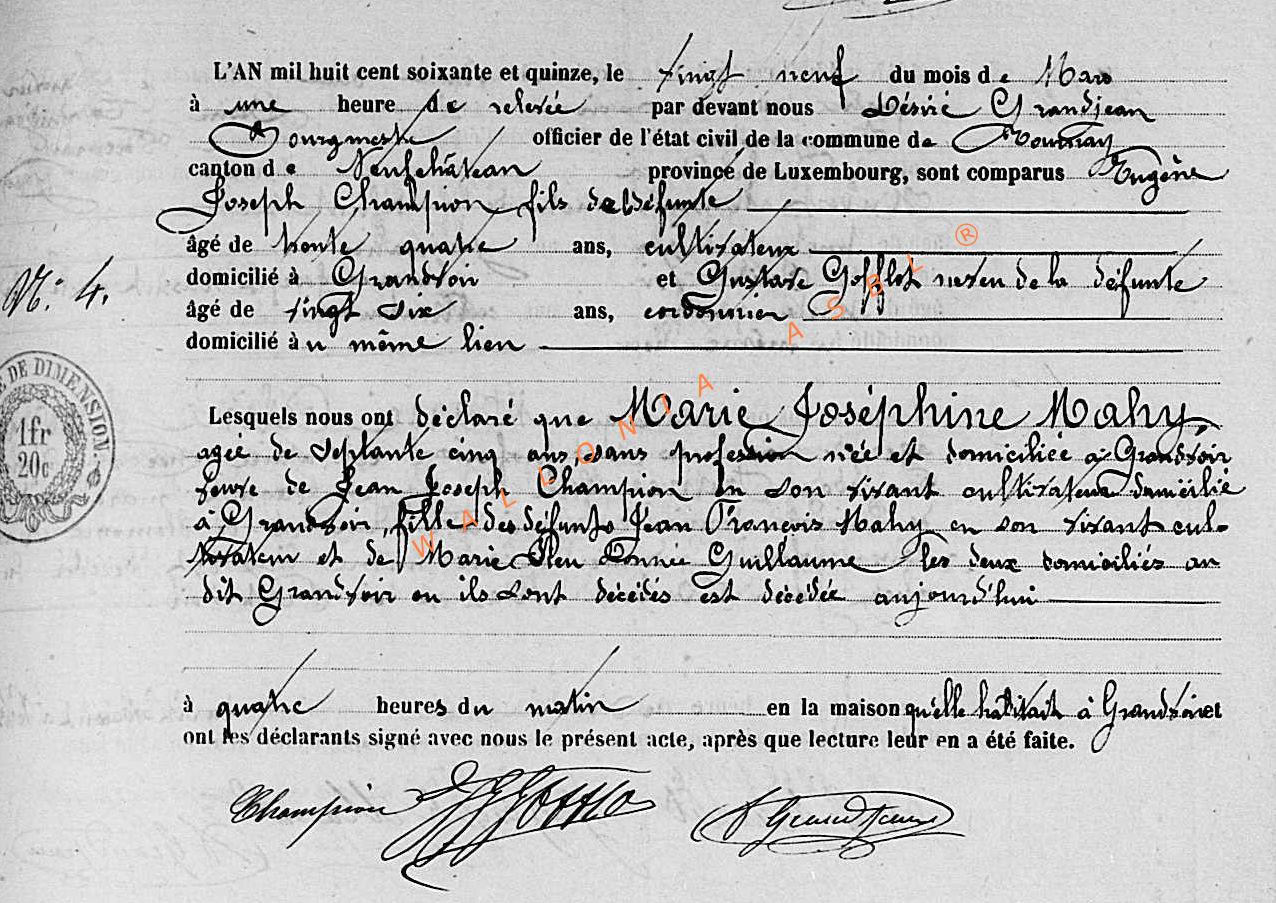 L'AN mil huit cent soixante et quinze, le vingt neuf du mois de Mars
à une heure de relevée par devant nous Désiré Grandjean
Bourgmestre officier de l'état civil de la commune de Tournay
canton de Neufchâteau province de Luxembourg, sont comparus Eugène
Joseph Champion fils de la défunte
âgé de trente quatre ans, cultivateur
domicilié à Grandvoir et Gustave Gofflot neveu de la défunte
N°: 4.
âgé de vingt six ans, cordonnier
domicilié au même lieu
E DE DIMENSION.
1fr
20c
Lesquels nous ont déclaré que Marie Joséphine Mahy,
agée de septante cinq ans, sans profession née et domiciliée à Grandvoir
veuve de Jean Joseph Champion en son vivant cultivateur domicilié
à Grandvoir, fille des défunts Jean François Mahy en son vivant cul-
tivateur et de Marie Guillaume les deux domiciliés au
dit Grandvoir ou ils sont décédés est décédée aujourd'hui
à quatre heures du matin en la maison qu'elle habitait à Grandvoir et
ont les déclarants signé avec nous le présent acte, après que lecture leur en a été faite.
Champion GGofflot D Grandjean
WALLONIA ASBL ®